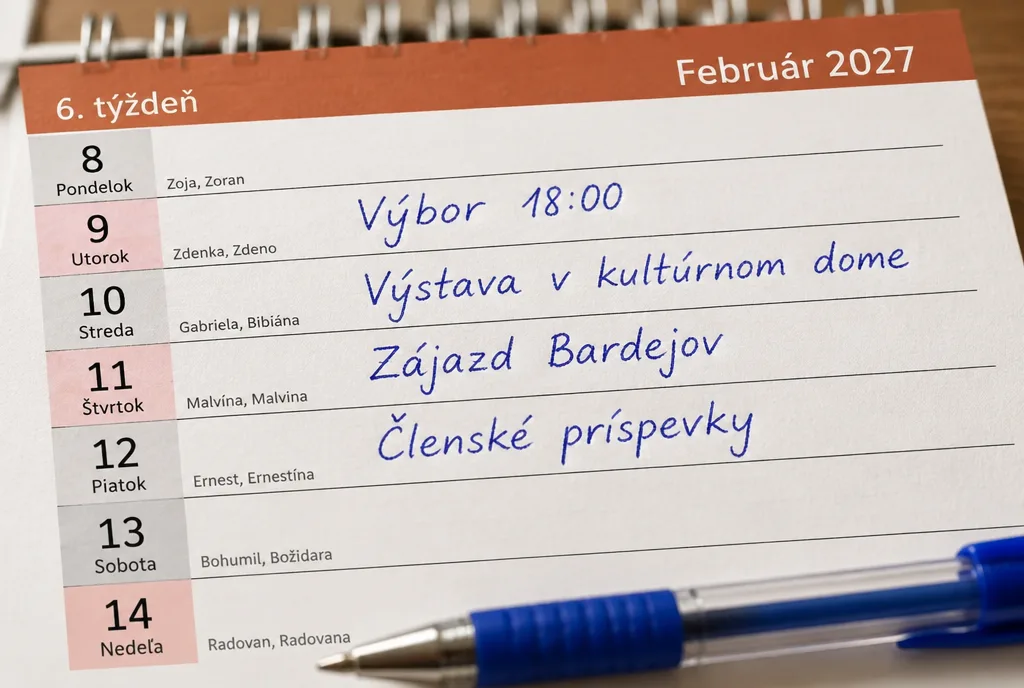 6. týždeň
Február 2027
8
Pondelok
Zoja, Zoran
9
Utorok
Zdenka, Zdeno
Výbor 18:00
10
Streda
Gabriela, Bibiána
Výstava v kultúrnom dome
11
Štvrtok
Malvína, Malvina
Zájazd Bardejov
12
Piatok
Ernest, Ernestína
Členské príspevky
13
Sobota
Bohumil, Božidara
14
Nedeľa
Radovan, Radovana